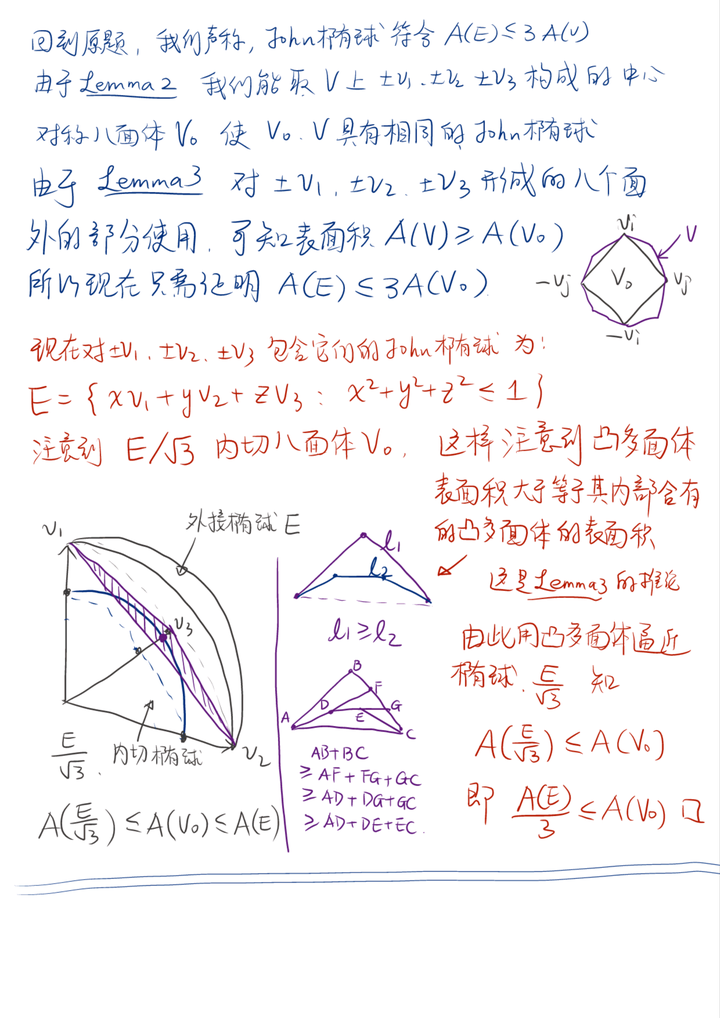 回到原题，我们声称，John椭球符合 A(E)≤3A(V)
由于Lemma2 我们能取V上 ±v₁.±v₂ ±v₃ 构成的中心
对称八面体V₀ 使 V₀.V具有相同的John椭球
由于 Lemma3 对 ±v₁.±v₂.±v₃形成的八个面
外的部分使用.可知表面积 A(V)≥A(V₀)
所以现在只需证明 A(E)≤3A(V₀)
vᵢ
V
-vⱼ
V₀
vⱼ
-vᵢ
现在对±v₁.±v₂.±v₃ 包含它们的John椭球为:
E={xv₁+yv₂+zv₃: x²+y²+z²≤1}
注意到 E/√3 内切八面体V₀.
这样注意到凸多面体
表面积大于等于其内部含有
的凸多面体的表面积
这是Lemma3的推论
由此用凸多面体逼近
椭球.E/√3 知
A(E/√3)≤A(V₀)
即 A(E)/3≤A(V₀) □
v₁
外接椭球E
v₃
v₂
E/√3.
内切椭球
A(E/√3)≤A(V₀)≤A(E)
l₁
l₂
l₁≥l₂
B
F
D
G
E
A
C
AB+BC
≥AF+FG+GC
≥AD+DG+GC
≥AD+DE+EC.